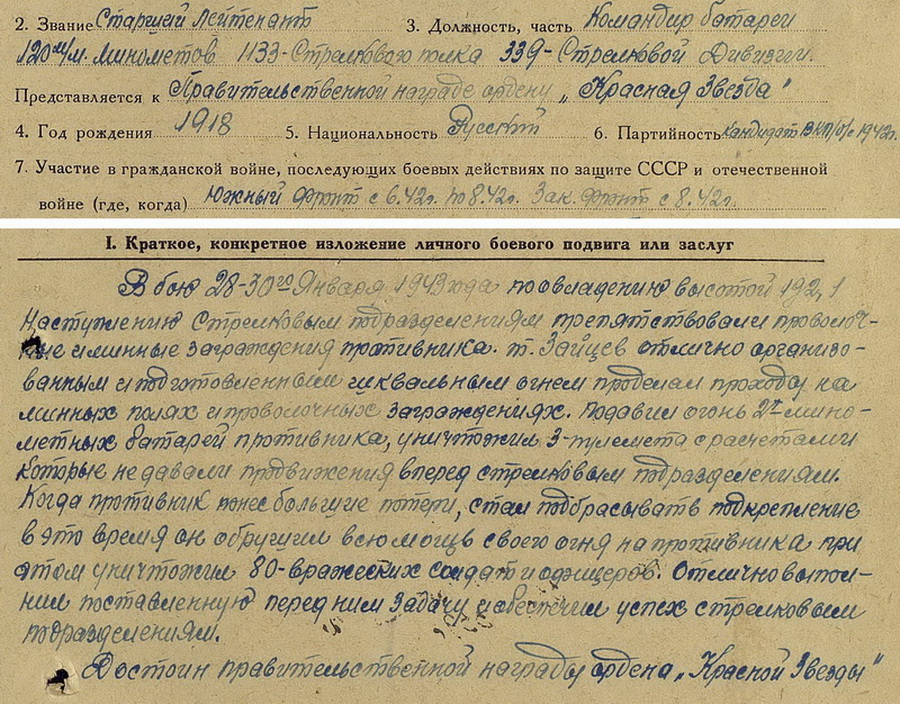 2. Звание Старший Лейтенант 3. Должность, часть Командир батареи
120 м/м. минометов 1133-Стрелкового полка 339-Стрелковой Дивизии.
Представляется к Правительственной награде ордену „Красная Звезда"
4. Год рождения 1918 5. Национальность Русский 6. Партийность кандидат ВКП/б/ с 1942г.
7. Участие в гражданской войне, последующих боевых действиях по защите СССР и отечественной
войне (где, когда) Южный фронт с 6.42г. по 8.42г. Зак. фронт с 8.42г.
I. Краткое, конкретное изложение личного боевого подвига или заслуг
В бою 28-30го Января 1943 года по овладению высотой 192,1
Наступлению Стрелковым подразделениям препятствовали проволоч-
ные и минные заграждения противника. т. Зайцев отлично организо-
ванным и подготовленным шквальным огнем проделал проходы на
минных полях и проволочных заграждениях. Подавил огонь 2х мино-
метных батарей противника, уничтожил 3-пулемета с расчетами
которые не давали продвижения вперед стрелковым подразделениям.
Когда противник понес большие потери, стал подбрасывать подкрепление
в это время он обрушил всю мощь своего огня на противника при
этом уничтожил 80-вражеских солдат и офицеров. Отлично выпол-
нил поставленную перед ним задачу и обеспечил успех стрелковым
подразделениям.
Достоин правительственной награды ордена „Красной Звезды"